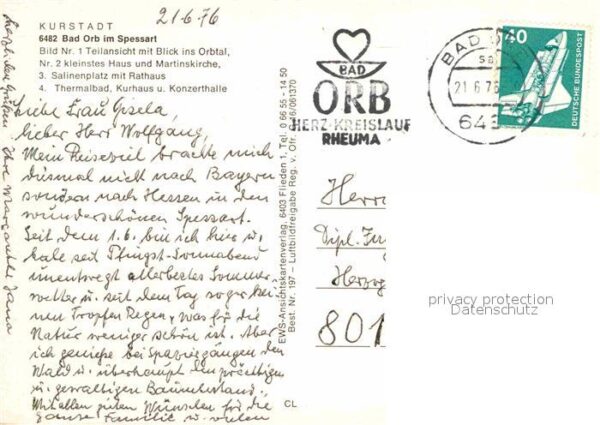 21.6.76
KURSTADT
6482 Bad Orb im Spessart
Bild Nr. 1 Teilansicht mit Blick ins Orbtal,
Nr. 2 kleinstes Haus und Martinskirche,
3. Salinenplatz mit Rathaus
4. Thermalbad, Kurhaus u. Konzerthalle
Liebe Frau Gisela,
lieber Herr Wolfgang,
Mein Reiseziel brachte mich
diesmal nicht nach Bayern
sondern nach Hessen in den
wunderschönen Spessart.
Seit dem 1.6. bin ich hier u.
habe seit Pfingst-Sonnabend
unentwegt allerbestes Sommer-
wetter u. seit dem Tag sogar kei-
nen Tropfen Regen, was für die
Natur weniger schön ist. Aber
ich genieße bei Spaziergängen den
Wald u. überhaupt den prächtigen
u. gewaltigen Baumbestand.
Mit allen guten Wünschen für die
ganze Familie u. vielen
herzlichen Grüßen Ihre Margarethe
EWS-Ansichtskartenverlag, 6403 Flieden 1, Tel. 0 66 55 - 14 50
Best. Nr. 197 - Luftbildfreigabe Reg. v. Ofr.
CL
BAD
ORB
HERZ-KREISLAUF
RHEUMA
BAD
21.6.76
40
DEUTSCHE BUNDESPOST
Herrn
Dipl.
Herzog
801
privacy protection
Datenschutz